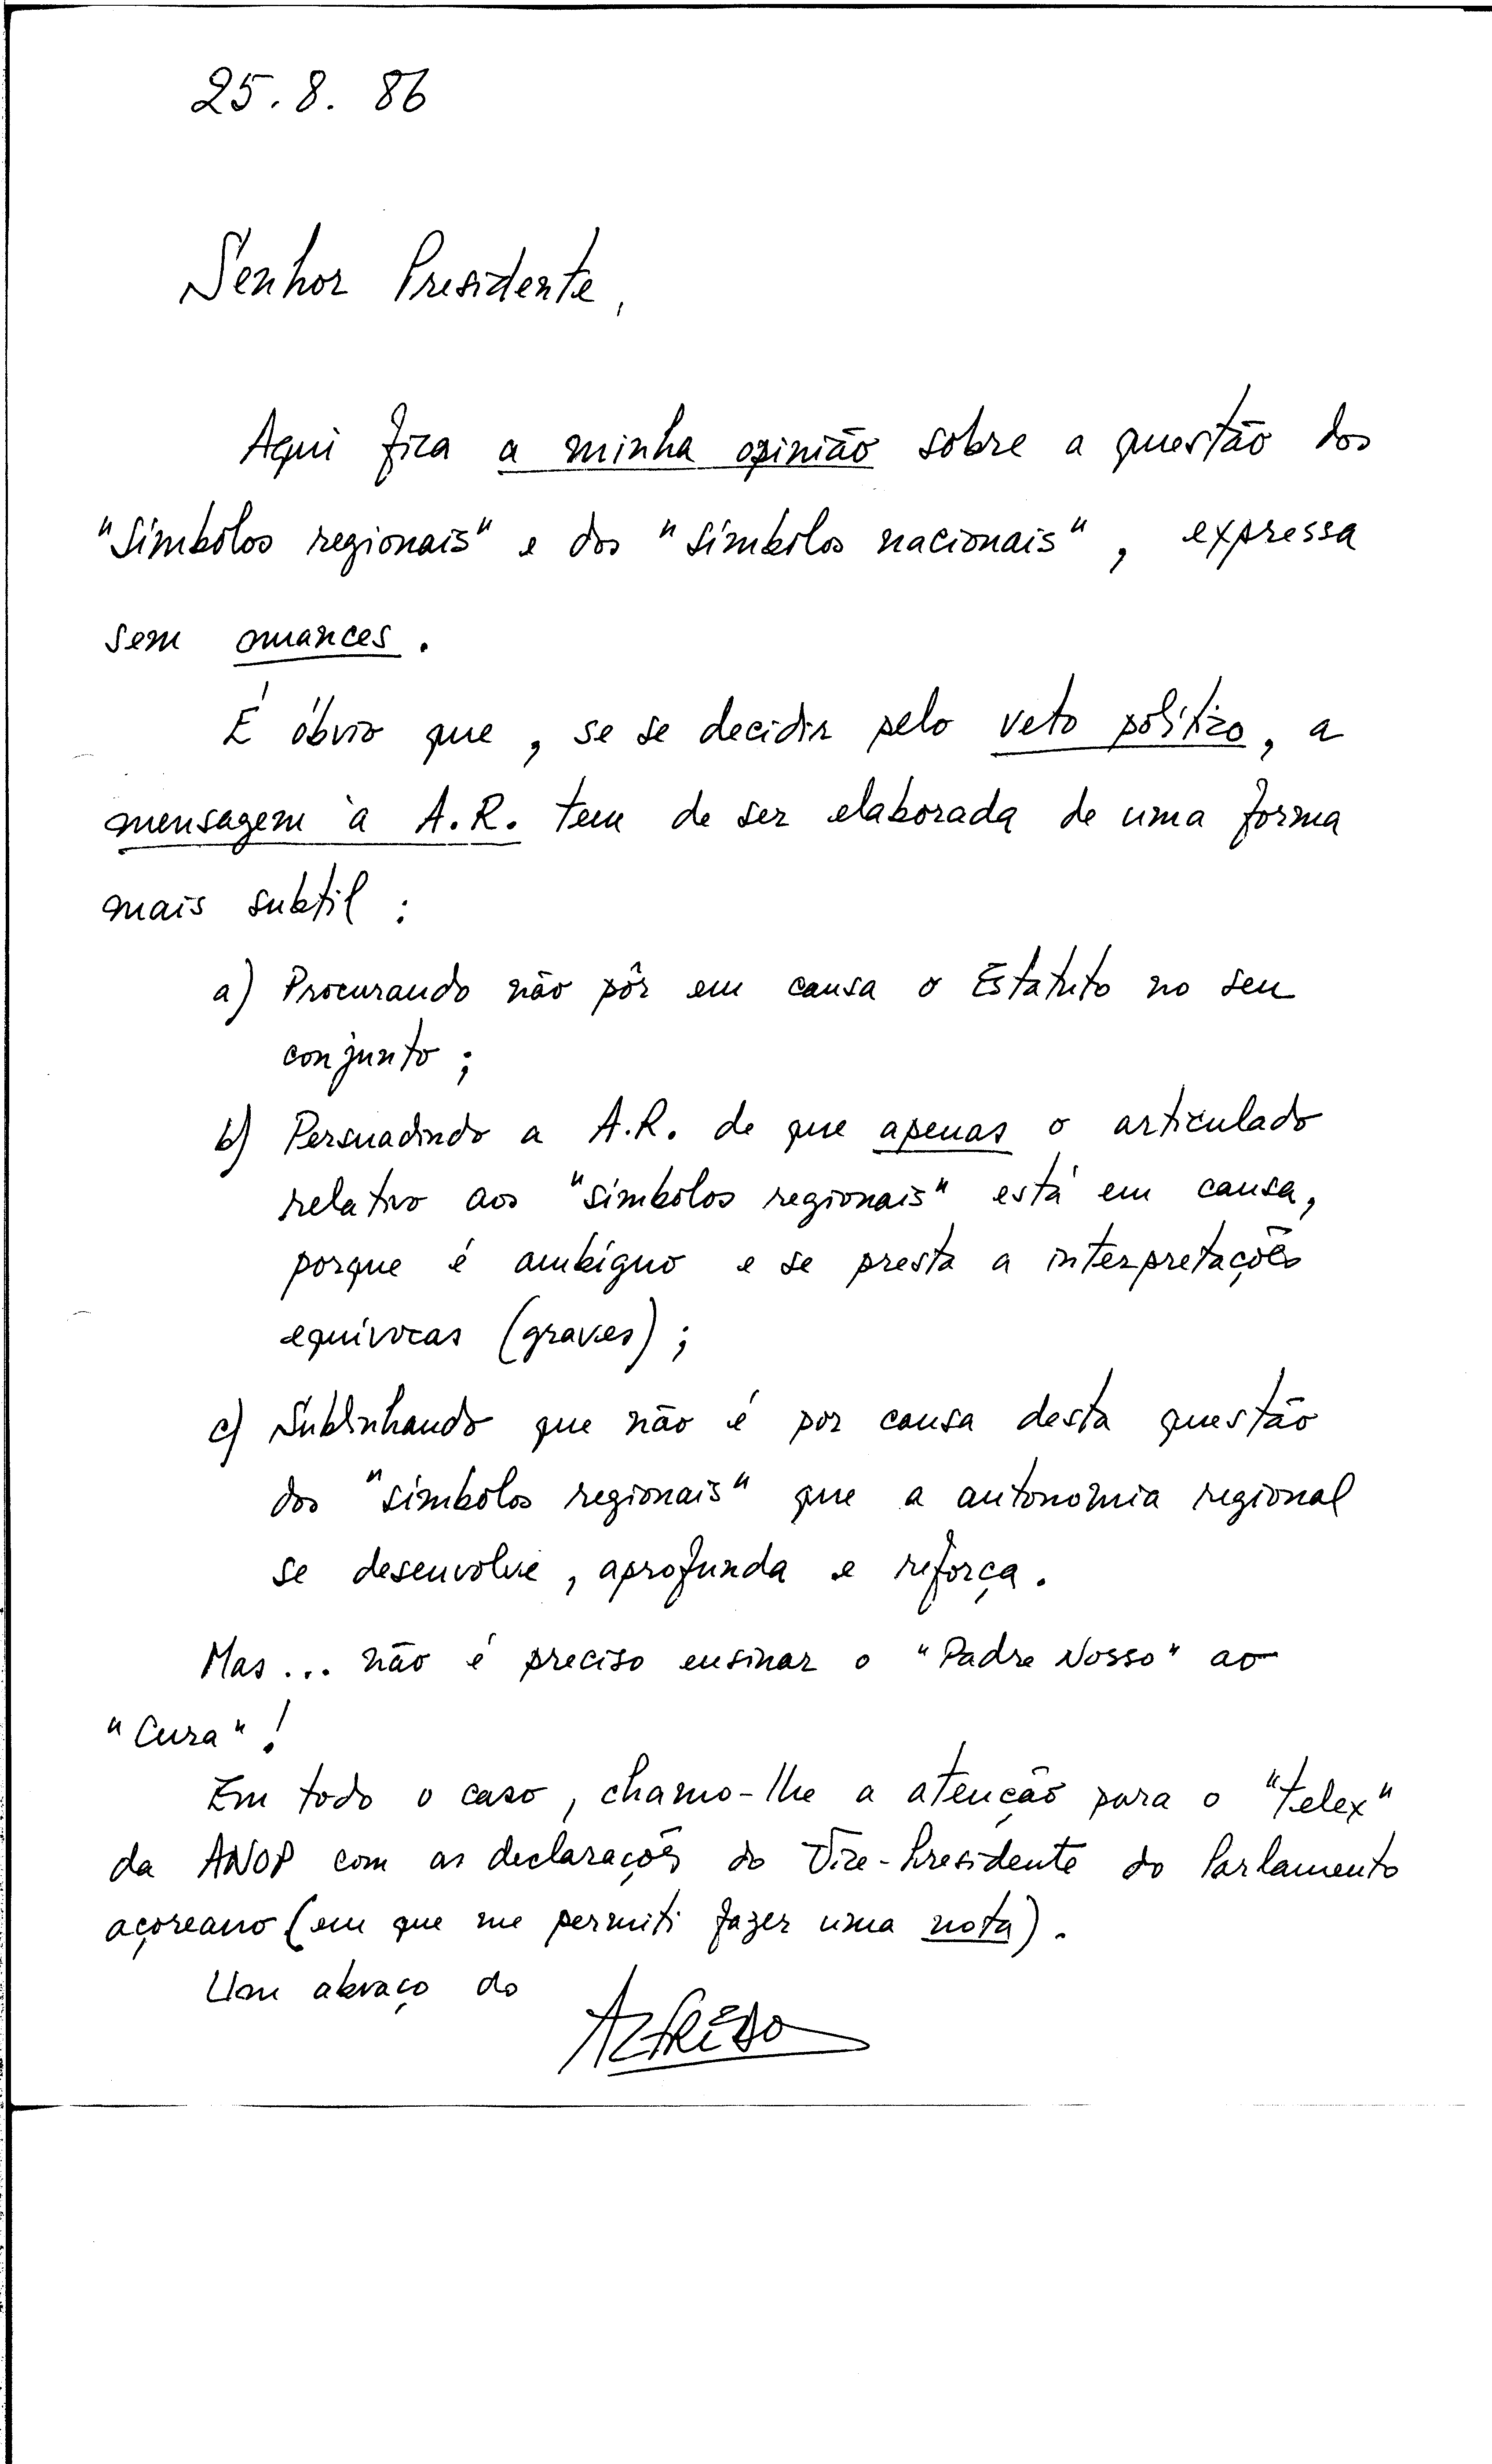 25.8.86
Senhor Presidente,
Aqui fica a minha opinião sobre a questão dos
"Símbolos regionais" e dos "símbolos nacionais", expressa
sem nuances.
É óbvio que, se se decidir pelo veto político, a
mensagem à A.R. tem de ser elaborada de uma forma
mais subtil:
a) Procurando não pôr em causa o Estatuto no seu
conjunto;
b) Persuadindo a A.R. de que apenas o articulado
relativo aos "símbolos regionais" está em causa,
porque é ambíguo e se presta a interpretações
equívocas (graves);
c) Sublinhando que não é por causa desta questão
dos "símbolos regionais" que a autonomia regional
se desenvolve, aprofunda e reforça.
Mas... não é preciso ensinar o "Padre Nosso" ao
"Cura"!
Em todo o caso, chamo-lhe a atenção para o "telex"
da ANOP com as declarações do Vice-Presidente do Parlamento
açoreano (em que me permiti fazer uma nota).
Um abraço do
Alfredo